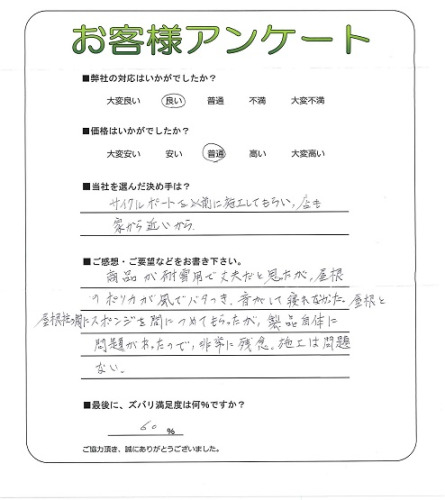 お客様アンケート
■弊社の対応はいかがでしたか？
大変良い 良い 普通 不満 大変不満
■価格はいかがでしたか？
大変安い 安い 普通 高い 大変高い
■当社を選んだ決め手は？
サイクルポートを以前に施工してもらい、店も
家から近いから
■ご感想・ご要望などをお書き下さい。
商品が耐雪用で丈夫だと思ったが、屋根
のポリカが風でバタつき、音がして寝れなかった。屋根と
屋根枠の間にスポンジを間につめてもらったが、製品自体に
問題があったので、非常に残念。施工は問題
ない。
■最後に、ズバリ満足度は何%ですか？
60 %
ご協力頂き、誠にありがとうございました。